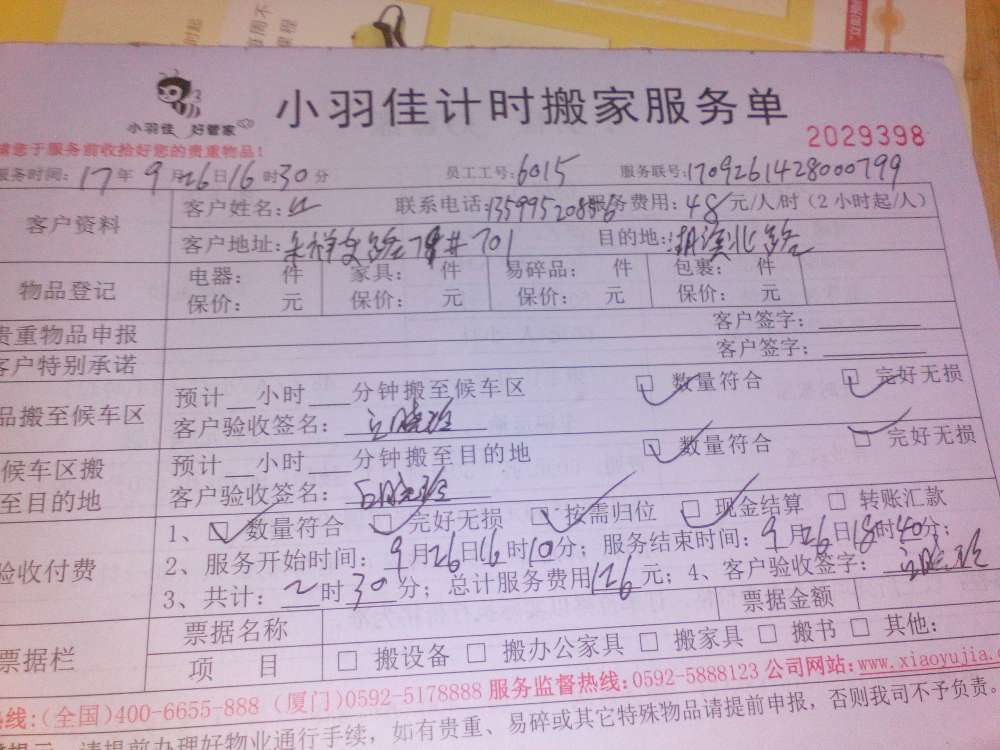 小羽佳 好管家
小羽佳计时搬家服务单
2029398
您于服务前收拾好您的贵重物品!
服务时间: 17年9月26日16时30分 员工工号: 6015 服务联号: 1709261428000799
客户资料
客户姓名: 联系电话: 服务费用: 48元/人/时(2小时起/人)
客户地址: 701 目的地: 北路
物品登记
电器: 件 家具: 件 易碎品: 件 包裹: 件
保价: 元 保价: 元 保价: 元 保价: 元
贵重物品申报 客户签字:
客户特别承诺 客户签字:
品搬至候车区
预计 小时 分钟搬至候车区 数量符合 完好无损
客户验收签名:
候车区搬至目的地
预计 小时 分钟搬至目的地 数量符合 完好无损
客户验收签名:
验收付费
1、 数量符合 完好无损 按需归位 现金结算 转账汇款
2、服务开始时间: 9月26日16时10分; 服务结束时间: 9月26日18时40分;
3、共计: 2时30分; 总计服务费用126元; 4、客户验收签字:
票据栏
票据名称 票据金额
项 目 搬设备 搬办公家具 搬家具 搬书 其他:
热线:(全国)400-6655-888 (厦门)0592-5178888 服务监督热线:0592-5888123 公司网站:www.xiaoyujia.
请提前办理好物业通行手续, 如有贵重、易碎或其它特殊物品请提前申报, 否则我司不予负责。